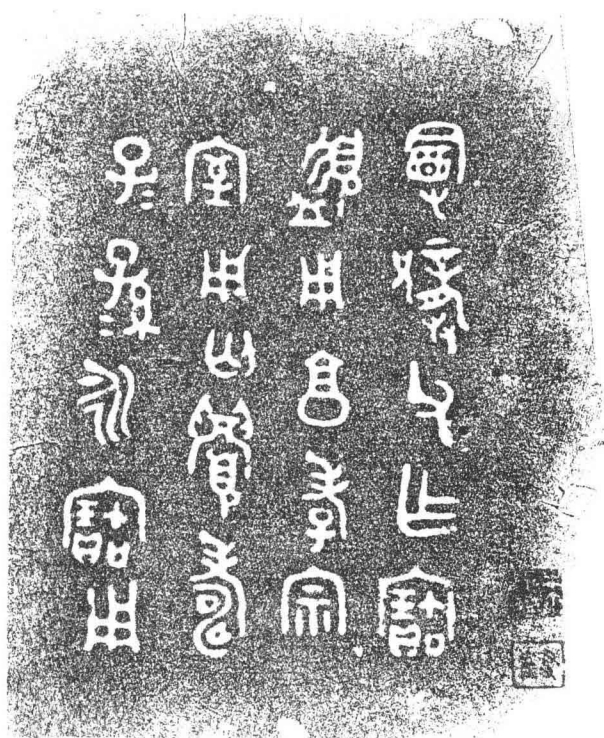 曼龏父乍寶
盨用享孝宗
室用匄眉壽
子=孫=永寶用